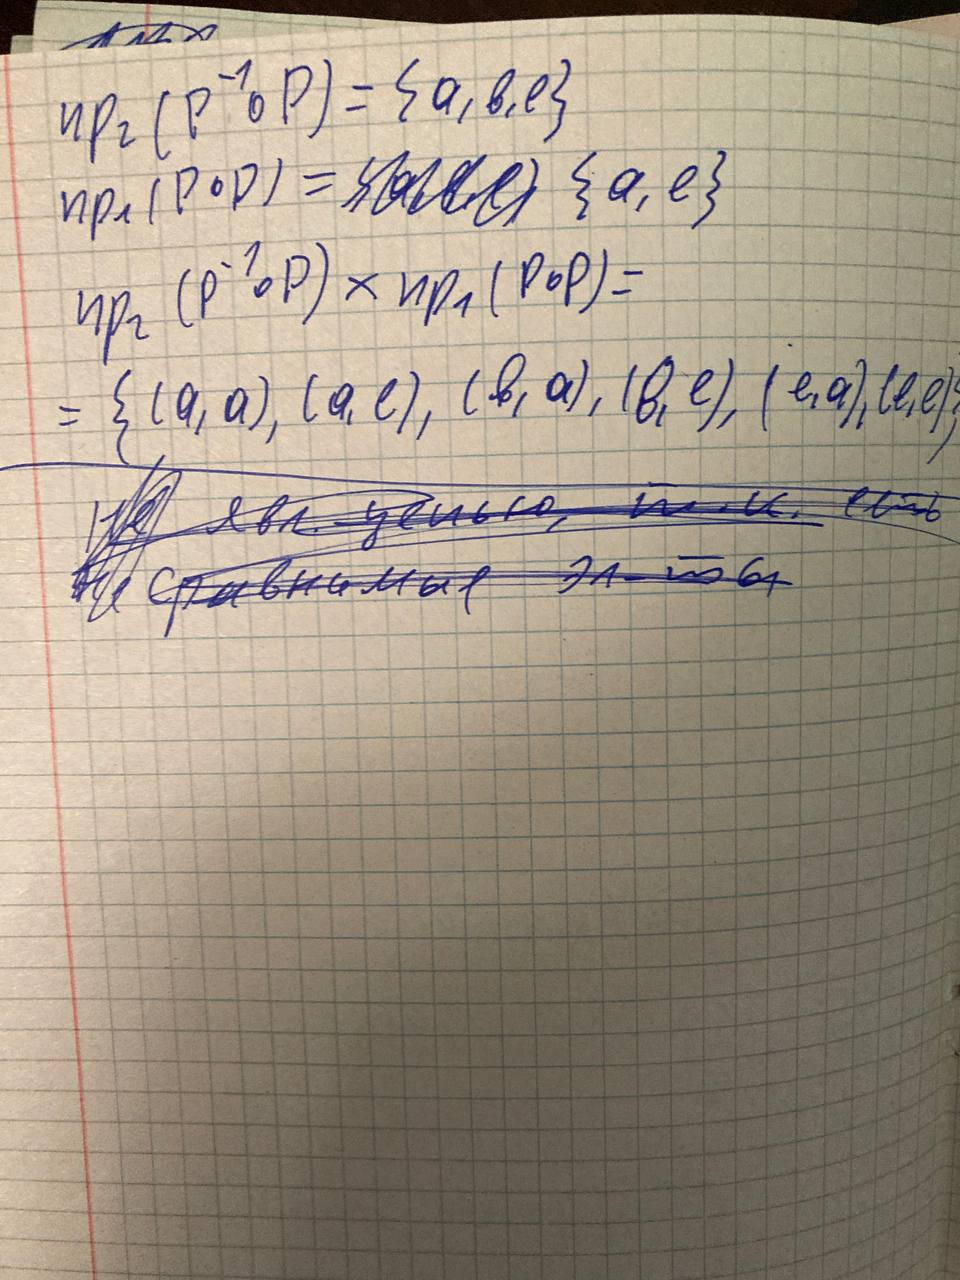 пр₂(P⁻¹∘P) = {a, в, e}
пр₁(P∘P) = {a, e}
пр₂(P⁻¹∘P) × пр₁(P∘P) =
= {(a, a), (a, e), (в, a), (в, e), (e, a), (e, e)}
явл. цепью, т.к. есть
не сравнимые эл-ты